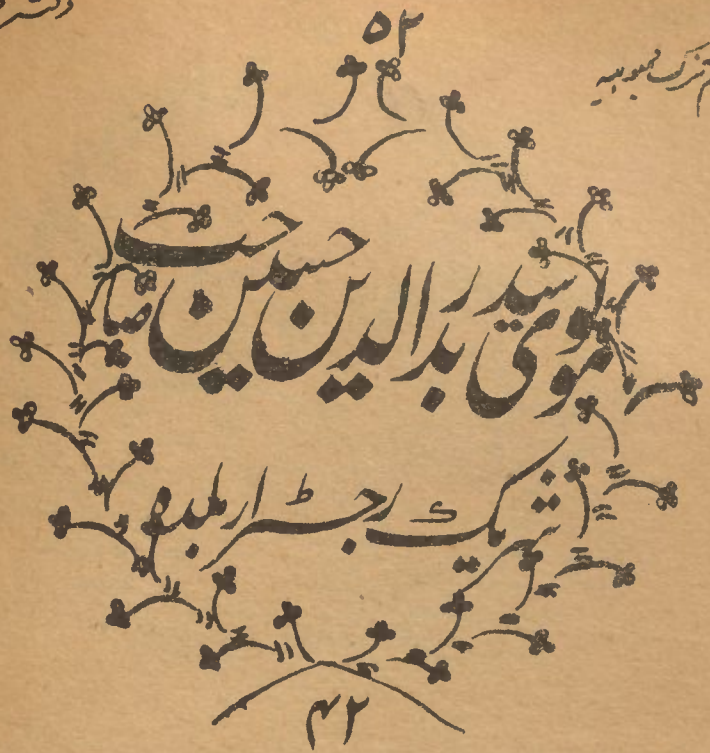 ۵۲
مولوی سید بدرالدین حسین صاحب
شریک رجسٹرار بلدہ
۴۲